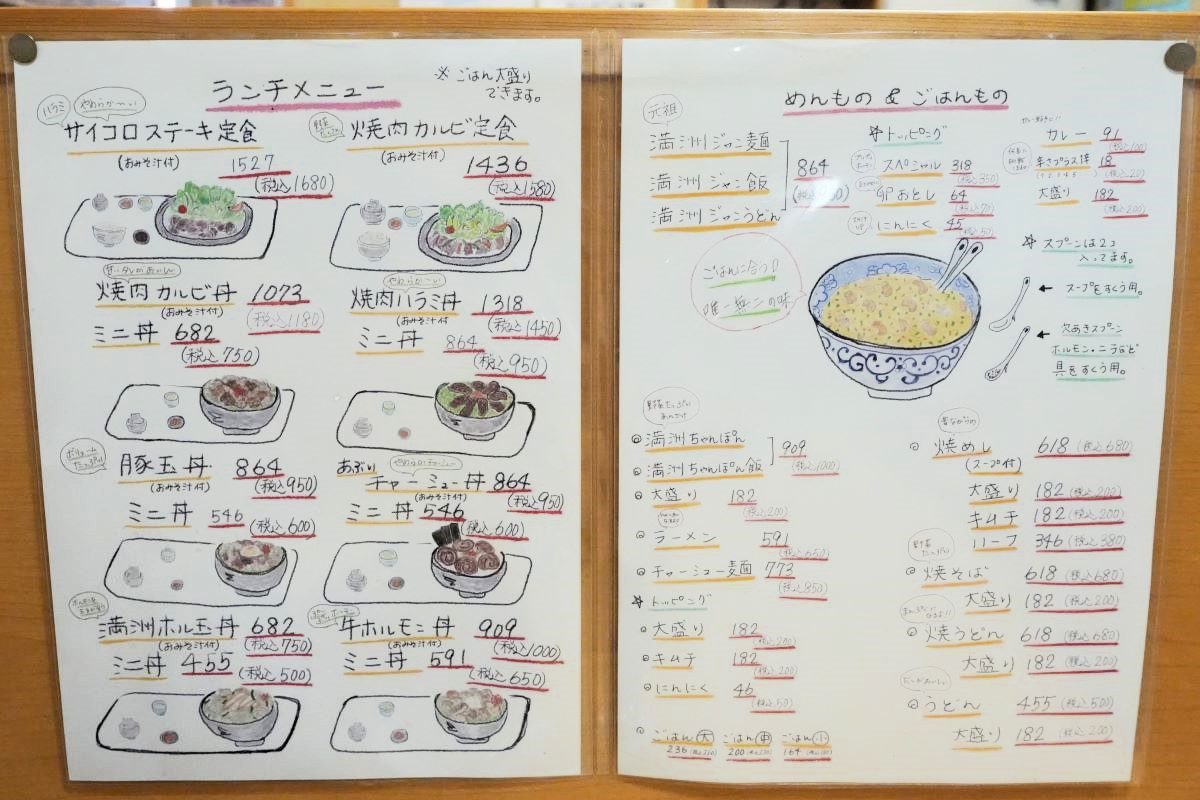 ランチメニュー
※ごはん大盛り
できます。
ハラミ
やわらか〜い
サイコロステーキ定食
(おみそ汁付)
1527
(税込1680)
野菜たっぷり
焼肉カルビ定食
(おみそ汁付)
1436
(税込1580)
焼肉カルビ丼 1073
(おみそ汁付)
(税込1180)
ミニ丼 682
(税込750)
やわらか〜い
焼肉ハラミ丼 1318
(おみそ汁付)
(税込1450)
ミニ丼 864
(税込950)
ボリュームたっぷり
豚玉丼 864
(おみそ汁付)
(税込950)
ミニ丼 546
(税込600)
あぶり
やわらかチャーシュー
チャーシュー丼 864
(おみそ汁付)
(税込950)
ミニ丼 546
(税込600)
満洲ホル玉丼 682
(おみそ汁付)
(税込750)
ミニ丼 455
(税込500)
牛ホルモン丼 909
(おみそ汁付)
(税込1000)
ミニ丼 591
(税込650)
めんもの & ごはんもの
元祖
満洲ジャン麺
満洲ジャン飯
満洲ジャンうどん
864
(税込950)
トッピング
スペシャル 318
(税込350)
GPおとし 64
(税込70)
にんにく 45
(税込50)
カレー 91
(税込100)
辛さプラス1辛 18
(1.2.3.4.5) (税込20)
大盛り 182
(税込200)
ごはんに合う!!
唯一無二の味
スプーンは2コ
入ってます。
← スープをすくう用。
← 穴あきスプーン
ホルモン・ニラなど
具をすくう用。
野菜たっぷり
あんかけ
満洲ちゃんぽん
満洲ちゃんぽん飯
909
(税込1000)
大盛り 182
(税込200)
ラーメン 591
(税込650)
チャーシュー麺 773
(税込850)
トッピング
大盛り 182
(税込200)
キムチ 182
(税込200)
にんにく 46
(税込50)
ごはん大 ごはん中 ごはん小
236 200 164
昔ながらの
焼めし 618 (税込680)
(スープ付)
大盛り 182 (税込200)
キムチ 182 (税込200)
ハーフ 346 (税込380)
野菜たっぷり
焼そば 618 (税込680)
大盛り 182 (税込200)
焼うどん 618 (税込680)
大盛り 182 (税込200)
だしがおいしい
うどん 455 (税込500)
大盛り 182 (税込200)